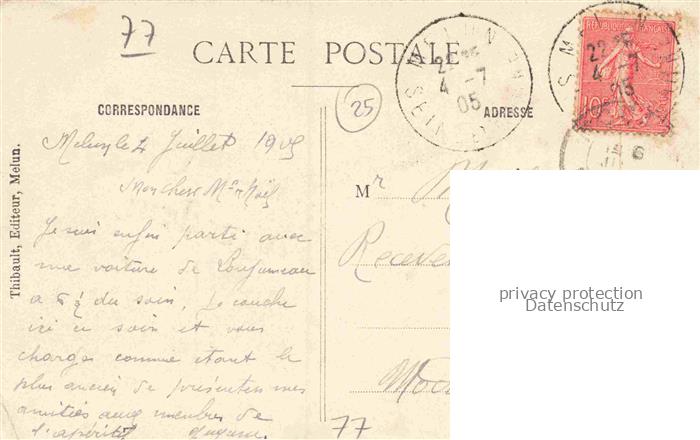 77
CARTE POSTALE
MELUN
22 15
4 - 7
05
SEINE
RÉPUBLIQUE FRANÇAISE
10
25
CORRESPONDANCE
ADRESSE
Melun le 4 Juillet 1905
Mon cher Mr Noël
Je suis enfin parti avec
ma voiture de Lonjumeau
a 5 ½ du soir. Je couche
ici ce soir et vous
charges comme étant le
plus ancien de présenter mes
amitiés aux membres de
l'apéritif
Thibault, Editeur, Melun.
Mr
privacy protection
Datenschutz
77